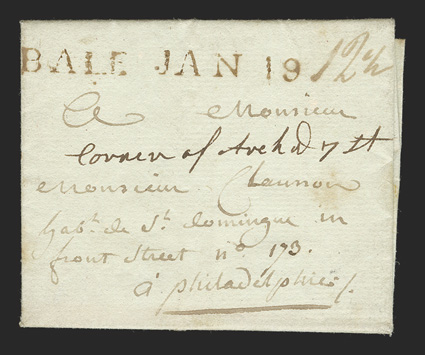 BALT JAN 19 12½
A Monsieur
Corner of Arch & 7 St
Monsieur Chausson
habt. de St. domingue in
front Street no. 173.
à philadelphie